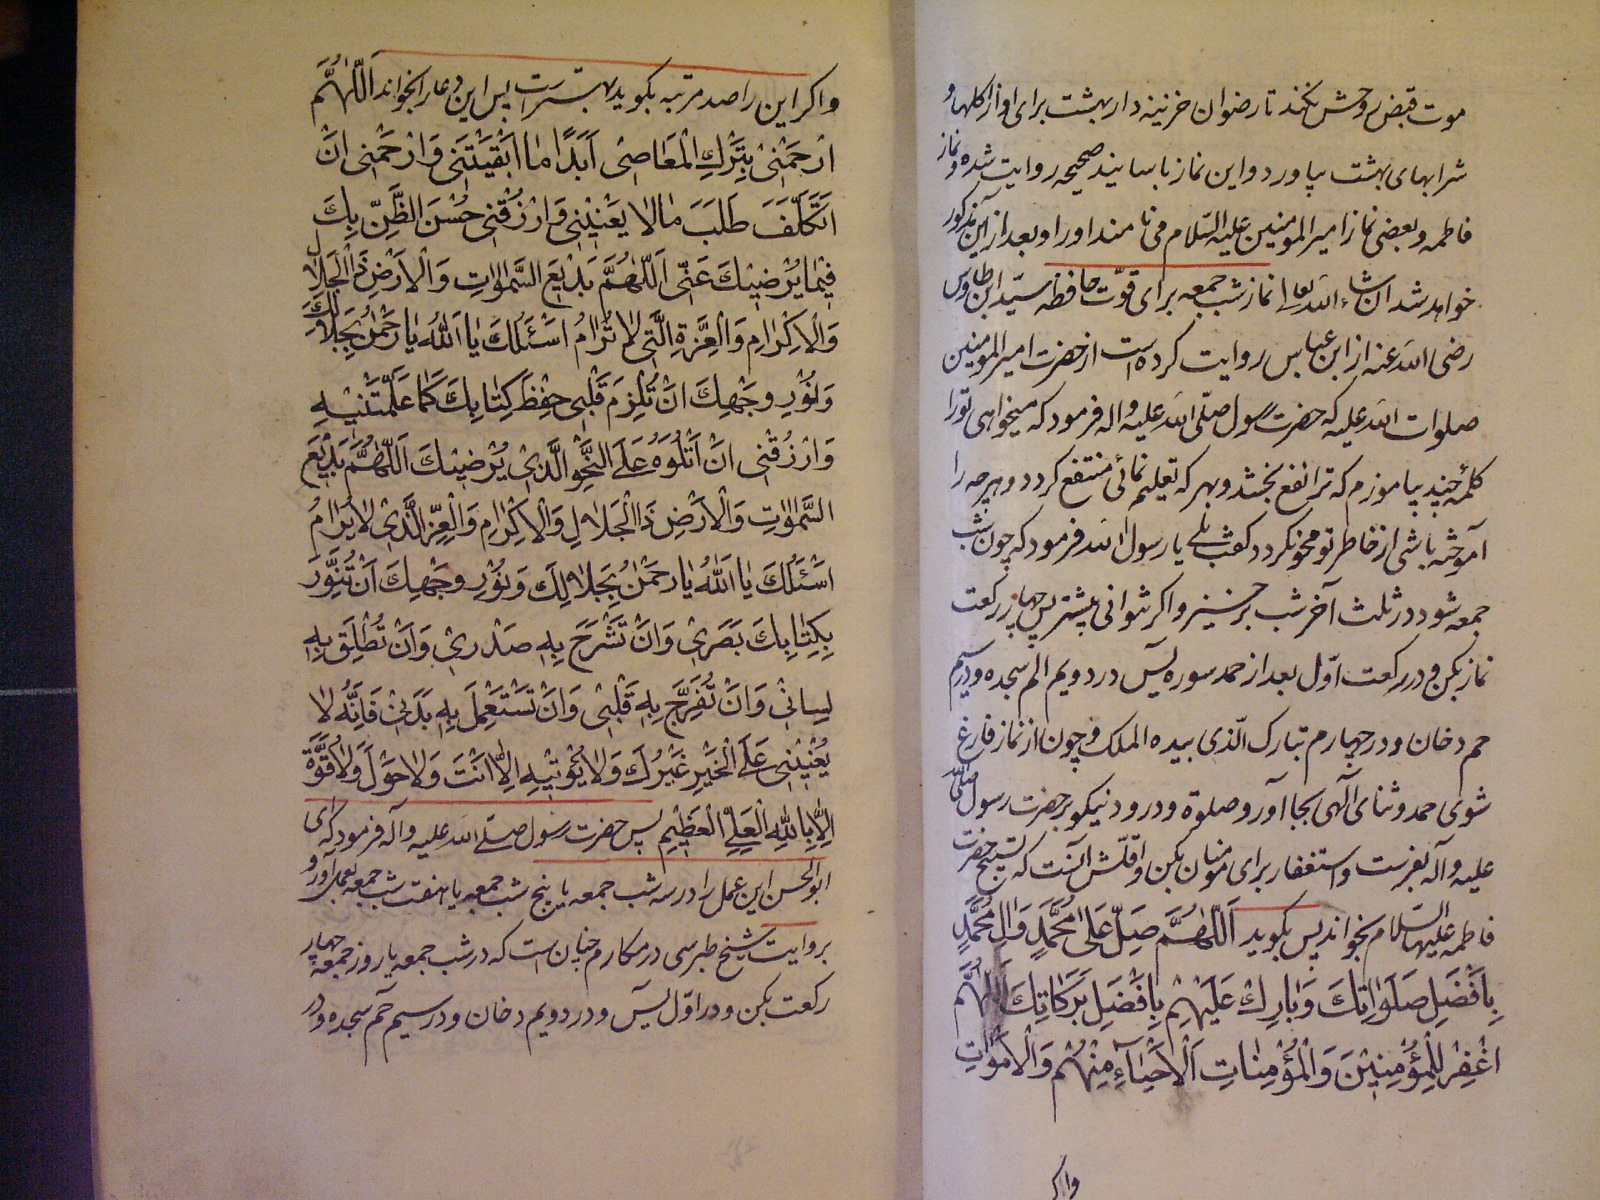 موت قبض روحش نکند تا رضوان خزینه دار بهشت برای او از اکلها و
شرابهای بهشت بیاورد و این نماز باسانید صحیحه روایت شده و نماز
فاطمه و بعضی نماز امیرالمومنین علیه السّلام می نامند او را و بعد از این مذکور
خواهد شد ان شاء الله تعالی نماز شب جمعه برای قوّت حافظه سیّد ابن طاوس
رضی الله عنه از ابن عباس روایت کرده است از حضرت امیرالمومنین
صلوات الله علیه که حضرت رسول صلّی الله علیه و اله فرمود که میخواهی تو را
کلمهٔ چند بیاموزم که ترا نفع بخشد و بهر که تعلیم نمائی منتفع کردد و هرچه را
آموخته باشی از خاطر تو محو نکردد کفت بلے یا رسول الله فرمود که چون شب
جمعه شود در ثلث آخر شب برخیز و اکر نتوانی پیشتر پس چهار رکعت
نماز بکن و در رکعت اوّل بعد از حمد سوره یٓس در دویم الم سجده و در سیم
حم دخان و در چهارم تبارک الّذی بیده الملک و چون از نماز فارغ
شوی حمد و ثنای الٓهی بجا آور و صلوة و درود نیکو بر حضرت رسول صلی الله
علیه و آله بفرست و استغفار برای مؤمنان بکن و اقلّش آنست که تسبیح حضرت
فاطمه علیها السلام بخواند پس بکوید اَللّٰهُمَّ صَلِّ عَلیٰ مُحَمَّدٍ وَالِ مُحَمَّدٍ
بِاَفْضَلِ صَلَوٰاتِكَ وَبٰارِكْ عَلَیْهِمْ بِاَفْضَلِ بَرَکٰاتِكَ اَللّٰهُمَّ
اغْفِرْ لِلْمُؤْمِنِیْنَ وَالْمُؤْمِنٰاتِ اَلْاَحْیٰآءِ مِنْهُمْ وَالْاَمْوٰاتِ
واکر
واکر این را صد مرتبه بکوید بهتر است پس این دعا را بخواند اَللّٰهُمَّ
ارْحَمْنِیْ بِتَرْكِ الْمَعٰاصِیْ اَبَدًا مٰا اَبْقَیْتَنِی وَارْحَمْنِی اَنْ
اَتَکَلَّفَ طَلَبَ مٰا لاٰ یَعْنِیْنِی وَارْزُقْنِی حُسْنَ الظَّنِّ بِكَ
فِیْمٰا یُرْضِیْكَ عَنِّی اَللّٰهُمَّ بَدِیْعَ السَّمٰوٰاتِ وَالْاَرْضِ ذَا الْجَلاٰلِ
وَالْاِکْرٰامِ وَالْعِزَّةِ الَّتِی لاٰ تُرٰامُ اَسْئَلُكَ یٰا اَللّٰهُ یٰا رَحْمٰنُ بِجَلاٰلِكَ
وَنُوْرِ وَجْهِكَ اَنْ تُلْزِمَ قَلْبِی حِفْظَ کِتٰابِكَ کَمٰا عَلَّمْتَنِیْهِ
وَارْزُقْنِی اَنْ اَتْلُوَهُ عَلَی النَّحْوِ الَّذِیْ یُرْضِیْكَ اَللّٰهُمَّ بَدِیْعَ
السَّمٰوٰاتِ وَالْاَرْضِ ذَا الْجَلاٰلِ وَالْاِکْرٰامِ وَالْعِزِّ الَّذِیْ لاٰ یُرٰامُ
اَسْئَلُكَ یٰا اَللّٰهُ یٰا رَحْمٰنُ بِجَلاٰلِكَ وَنُوْرِ وَجْهِكَ اَنْ تُنَوِّرَ
بِکِتٰابِكَ بَصَرِیْ وَاَنْ تَشْرَحَ بِهِ صَدْرِیْ وَاَنْ تُطْلِقَ بِهِ
لِسٰانِیْ وَاَنْ تُفَرِّجَ بِهِ قَلْبِی وَاَنْ تَسْتَعْمِلَ بِهِ بَدَنِیْ فَاِنَّهُ لاٰ
یُعْیْنُنِی عَلَی الْخَیْرِ غَیْرُكَ وَلاٰ یُؤْتِیْهِ اِلاّٰ اَنْتَ وَلاٰ حَوْلَ وَلاٰ قُوَّةَ
اِلاّٰ بِاللّٰهِ الْعَلِیِّ الْعَظِیْمِ پس حضرت رسول صلّے الله علیه و آله فرمود که ای
ابوالحسن این عمل را در سه شب جمعه یا پنج شب جمعه یا هفت شب جمعه بعمل آور و
بروایت شیخ طبرسی در مکارم چنان است که در شب جمعه یا روز جمعه چهار
رکعت بکن و در اوّل یٓس و در دویم دخان و در سیم حٓم سجده و در